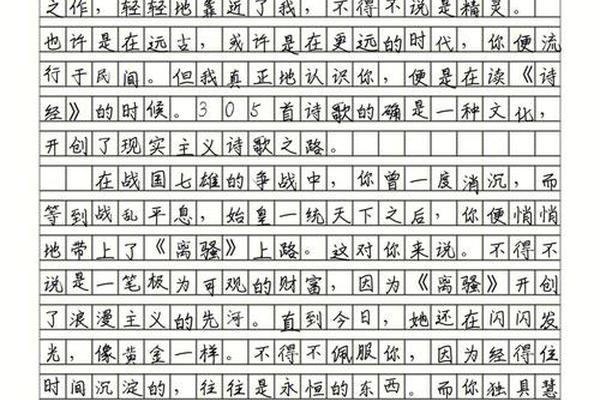 之作，轻轻地靠近了我，不得不说是精灵。
也许是在远古，或许是在更远的时代，你便流
行于民间。但我真正地认识你，便是在读《诗
经》的时候。305首诗歌的确是一种文化，
开创了现实主义诗歌之路。
在战国七雄的争战中，你曾一度消沉，而
等到战乱平息，始皇一统天下之后，你便悄悄
地带上了《离骚》上路。这对你来说。不得不
说是一笔极为可观的财富，因为《离骚》开创
了浪漫主义的先河。直到今日，她还在闪闪发
光，像黄金一样。不得不佩服你，因为经得住
时间沉淀的，往往是永恒的东西。而你独具慧